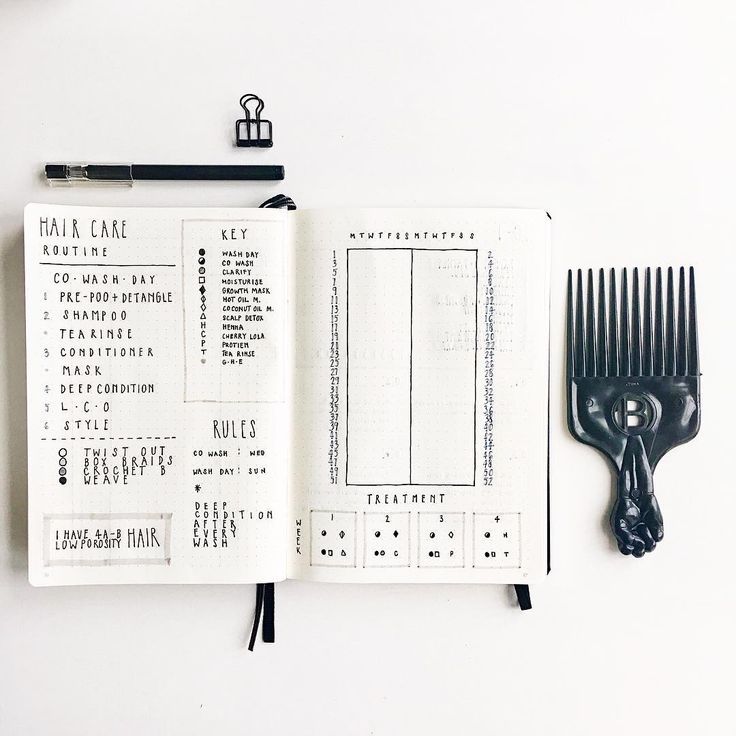 HAIR CARE
ROUTINE
CO-WASH-DAY
1 PRE-POO + DETANGLE
2 SHAMPOO
- TEA RINSE
3 CONDITIONER
- MASK
4 DEEP CONDITION
5 L·C·O
6 STYLE
TWIST OUT
BOX BRAIDS
CROCHET B
WEAVE
I HAVE 4A-B
LOW POROSITY HAIR
KEY
WASH DAY
CO WASH
CLARIFY
MOISTURISE
GROWTH MASK
HOT OIL M.
COCONUT OIL M.
SCALP DETOX
H HENNA
C CHERRY LOLA
P PROTIEN
T TEA RINSE
G·H·E
RULES
CO WASH : WED
WASH DAY : SUN
*
DEEP
CONDITION
AFTER
EVERY
WASH
M T W T F S S M T W T F S S
1 2
3 4
5 6
7 8
9 10
11 12
13 14
15 16
17 18
19 20
21 22
23 24
25 26
27 28
29 30
31 32
33 34
35 36
37 38
39 40
41 42
43 44
45 46
47 48
49 50
51 52
TREATMENT
WEEK
1 2 3 4
H
C P T
B